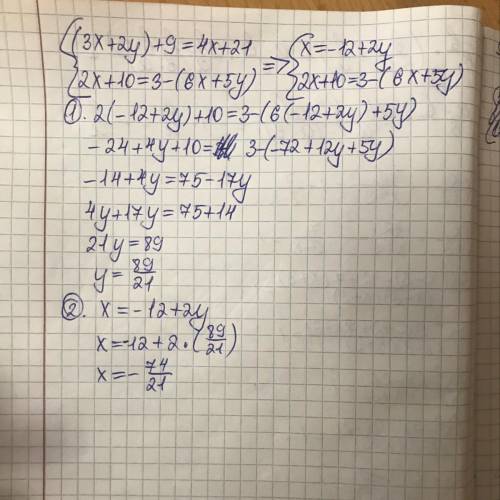 {(3x+2y)+9=4x+21 => {x=-12+2y
{2x+10=3-(6x+5y) {2x+10=3-(6x+5y)
①. 2(-12+2y)+10=3-(6(-12+2y)+5y)
-24+4y+10= 3-(-72+12y+5y)
-14+4y=75-17y
4y+17y=75+14
21y=89
y=89/21
②. x=-12+2y
x=-12+2·(89/21)
x=-74/21